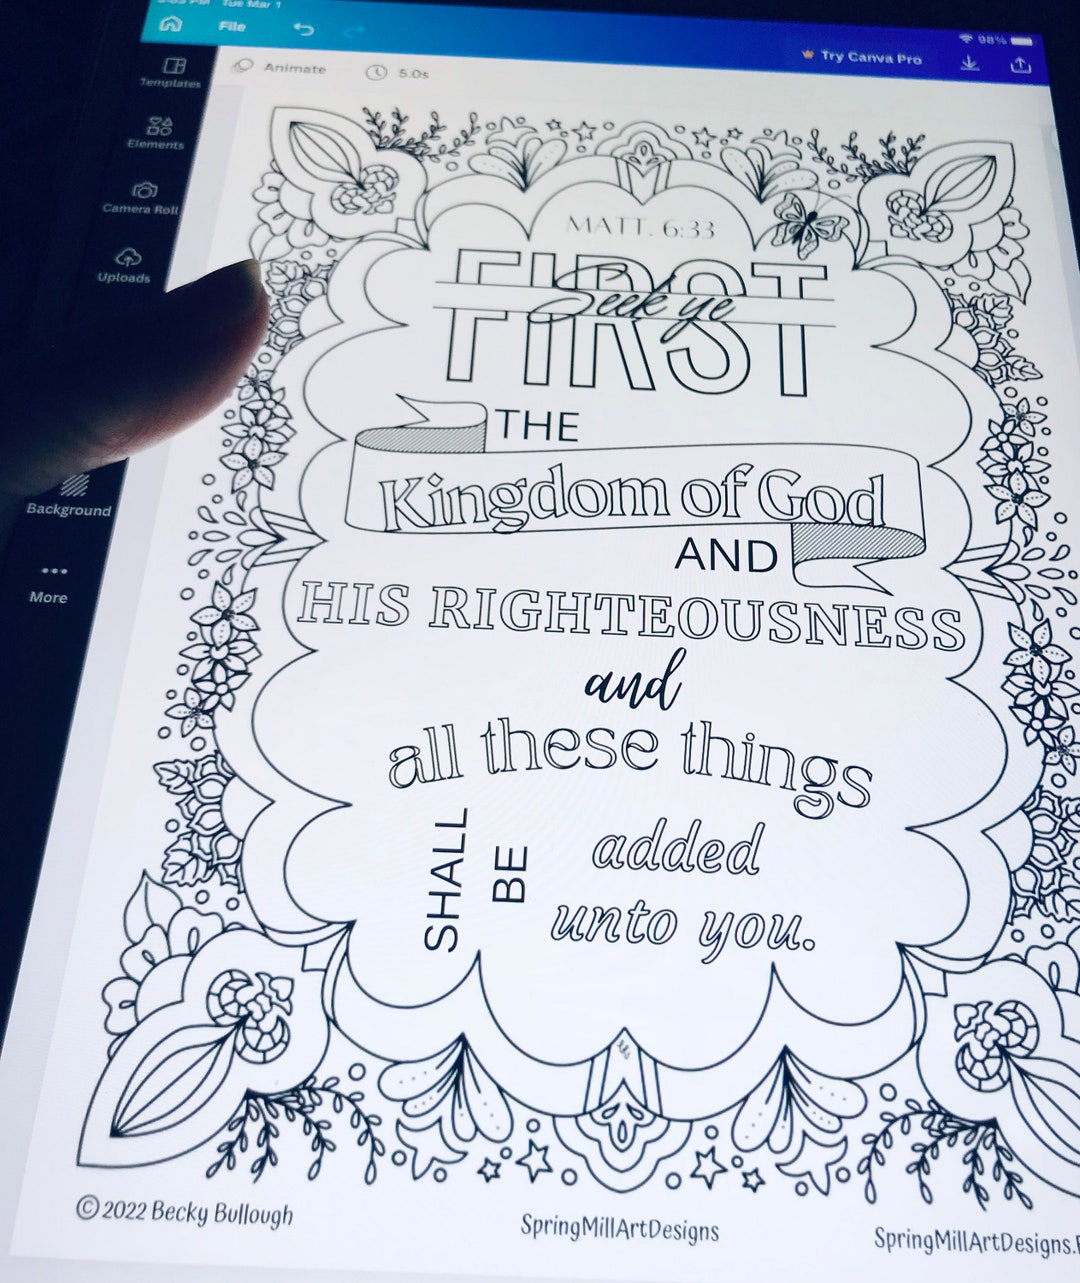 Tue Mar 1
98%
File
Try Canva Pro
Templates
Animate
5.0s
Elements
Camera Roll
Uploads
Background
More
MATT. 6:33
Seek ye
FIRST
THE
Kingdom of God
AND
HIS RIGHTEOUSNESS
and
all these things
SHALL
BE
added
unto you.
© 2022 Becky Bullough
SpringMillArtDesigns
SpringMillArtDesigns.